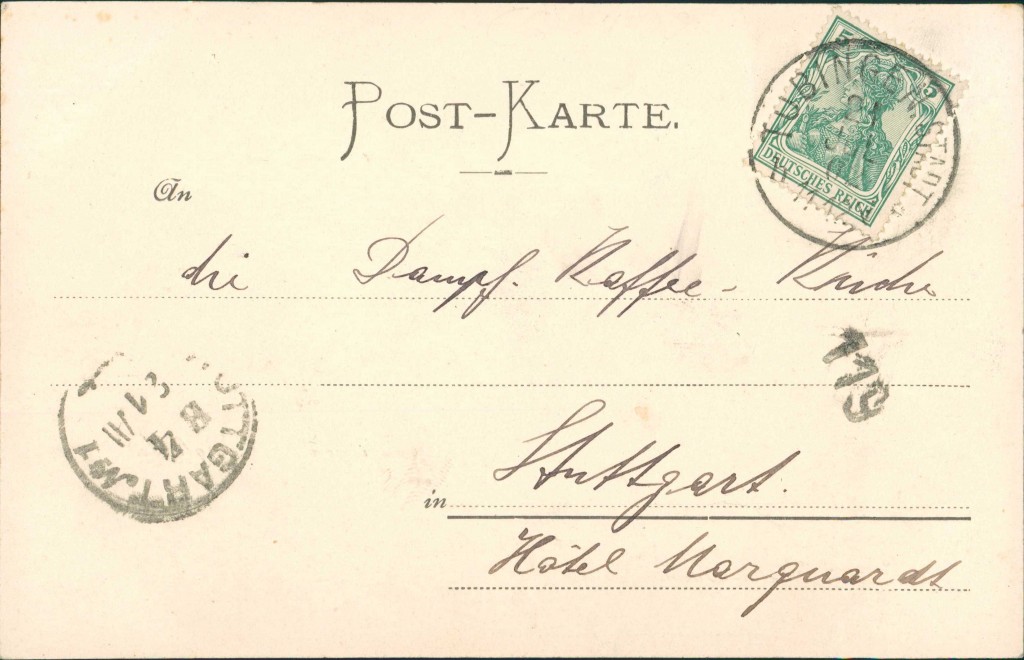 POST-KARTE.
5 5
DEUTSCHES REICH
TÜBINGEN STADT
An
die Dampf. Kaffee-Küche
119
STUTTGART No 1
B 4
Stuttgart.
in
Hôtel Marquardt